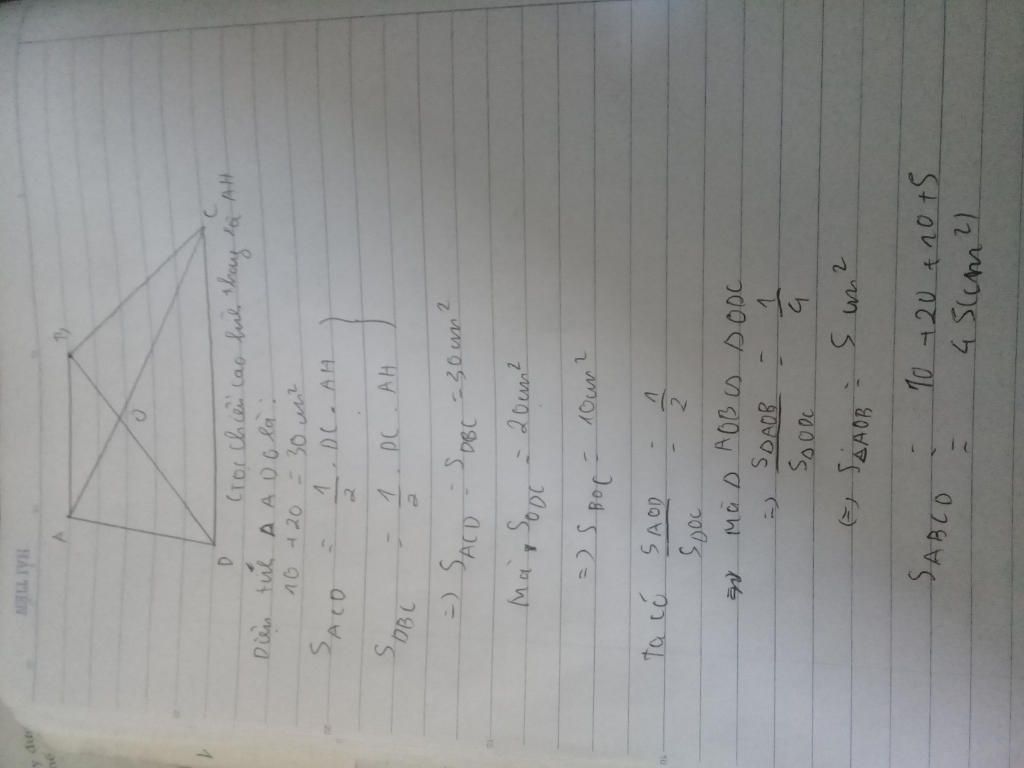 HẢI TIẾN
A B
O
D C
(Gọi chiều cao hình thang là AH
Diện tích Δ ADC là:
10 + 20 = 30 cm²
S ACD = 1/2 . DC . AH }
S DBC = 1/2 . DC . AH
=> S ACD = S DBC = 30 cm²
Mà S ODC = 20 cm²
=> S BOC = 10 cm²
Ta có S AOD / S DOC = 1/2
=> Mà Δ AOB ∽ Δ ODC
=> S ΔAOB / S ΔODC = 1/4
(=) S ΔAOB = 5 cm²
S ABCD = 10 + 20 + 10 + 5
= 45 (cm²)
1